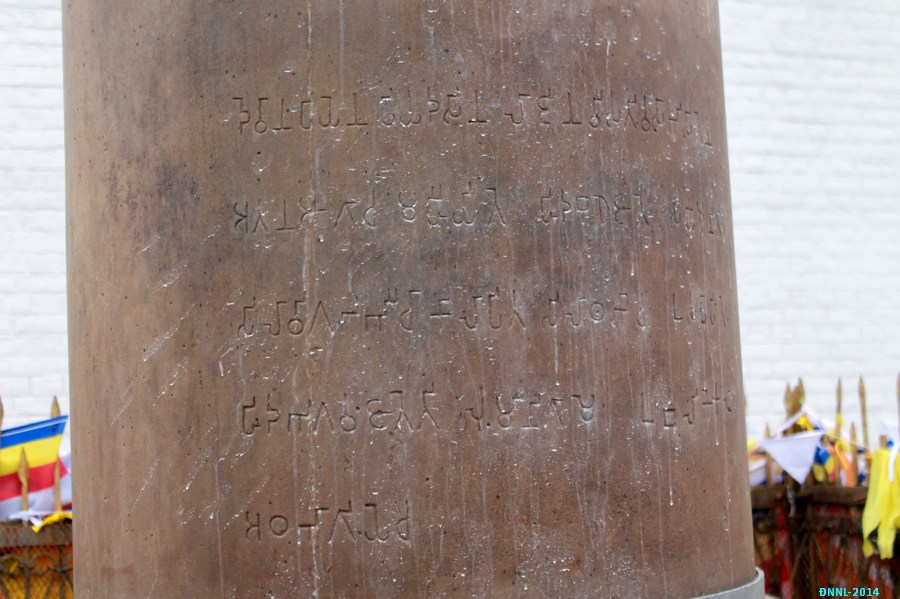 𑀤𑁂𑀯𑀸𑀦𑀧𑀺𑀬𑁂𑀦 𑀧𑀺𑀬𑀤𑀲𑀺𑀦 𑀮𑀸𑀚𑀺𑀦 𑀯𑀻𑀲𑀢𑀺𑀯𑀲𑀸𑀪𑀺𑀲𑀺𑀢𑁂𑀦
𑀅𑀢𑀦 𑀆𑀕𑀸𑀘 𑀫𑀳𑀻𑀬𑀺𑀢𑁂 𑀳𑀺𑀤 𑀩𑀼𑀥𑁂 𑀚𑀸𑀢𑁂 𑀲𑀓𑁆𑀬𑀫𑀼𑀦𑀺𑀢𑀺
𑀲𑀺𑀮𑀸𑀯𑀺𑀕𑀟𑀪𑀺𑀘𑀸 𑀓𑀸𑀮𑀸𑀧𑀺𑀢 𑀲𑀺𑀮𑀸𑀣𑀪𑁂𑀘 𑀉𑀲𑀧𑀸𑀧𑀺𑀢𑁂
𑀳𑀺𑀤 𑀪𑀕𑀯𑀁 𑀚𑀸𑀢𑁂𑀢𑀺 𑀮𑀼𑀁𑀫𑀺𑀦𑀺 𑀕𑀸𑀫𑁂 𑀉𑀩𑀮𑀺𑀓𑁂 𑀓𑀝𑁂
𑀅𑀞𑀪𑀸𑀕𑀺𑀬𑁂 𑀘
ĐNNL-2014